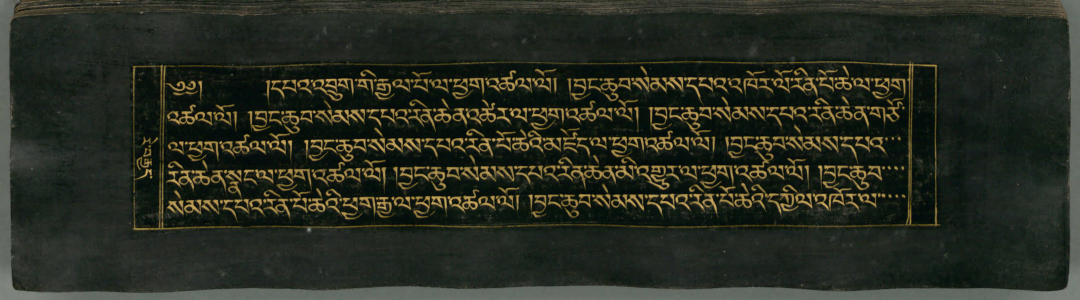 ༄༅། །དཔའ་འབྲུག་གི་རྒྱལ་པོ་ལ་ཕྱག་འཚལ་ལོ། །བྱང་ཆུབ་སེམས་དཔའ་འཁོར་ལོ་རིན་པོ་ཆེ་ལ་ཕྱག
འཚལ་ལོ། །བྱང་ཆུབ་སེམས་དཔའ་རིན་ཆེན་འཚེར་ལ་ཕྱག་འཚལ་ལོ། །བྱང་ཆུབ་སེམས་དཔའ་རིན་ཆེན་གཙོ་
ལ་ཕྱག་འཚལ་ལོ། །བྱང་ཆུབ་སེམས་དཔའ་རིན་པོ་ཆེའི་མཛོད་ལ་ཕྱག་འཚལ་ལོ། །བྱང་ཆུབ་སེམས་དཔའ་
རིན་ཆེན་སྣང་ལ་ཕྱག་འཚལ་ལོ། །བྱང་ཆུབ་སེམས་དཔའ་རིན་ཆེན་མི་འགྱུར་ལ་ཕྱག་འཚལ་ལོ། །བྱང་ཆུབ་
སེམས་དཔའ་རིན་པོ་ཆེའི་ཕྱག་རྒྱ་ལ་ཕྱག་འཚལ་ལོ། །བྱང་ཆུབ་སེམས་དཔའ་རིན་པོ་ཆེའི་དཀྱིལ་འཁོར་ལ་